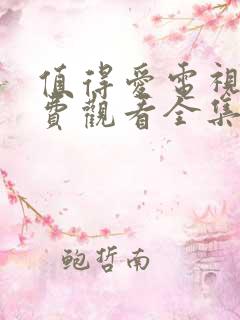 值得愛電視
費觀看全集
鲍哲南